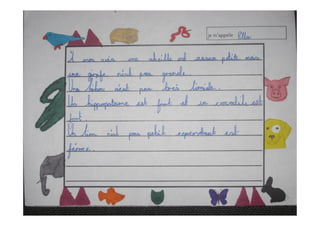 je m'appelle Ella
A mon avis une abeille est assez petite mais
une girafe n'est pas grande.
Une zèbre n'est pas très timide.
Un hippopotame est fort et un crocodile est
fort.
Un lion n'est pas petit cependant est
féroce.